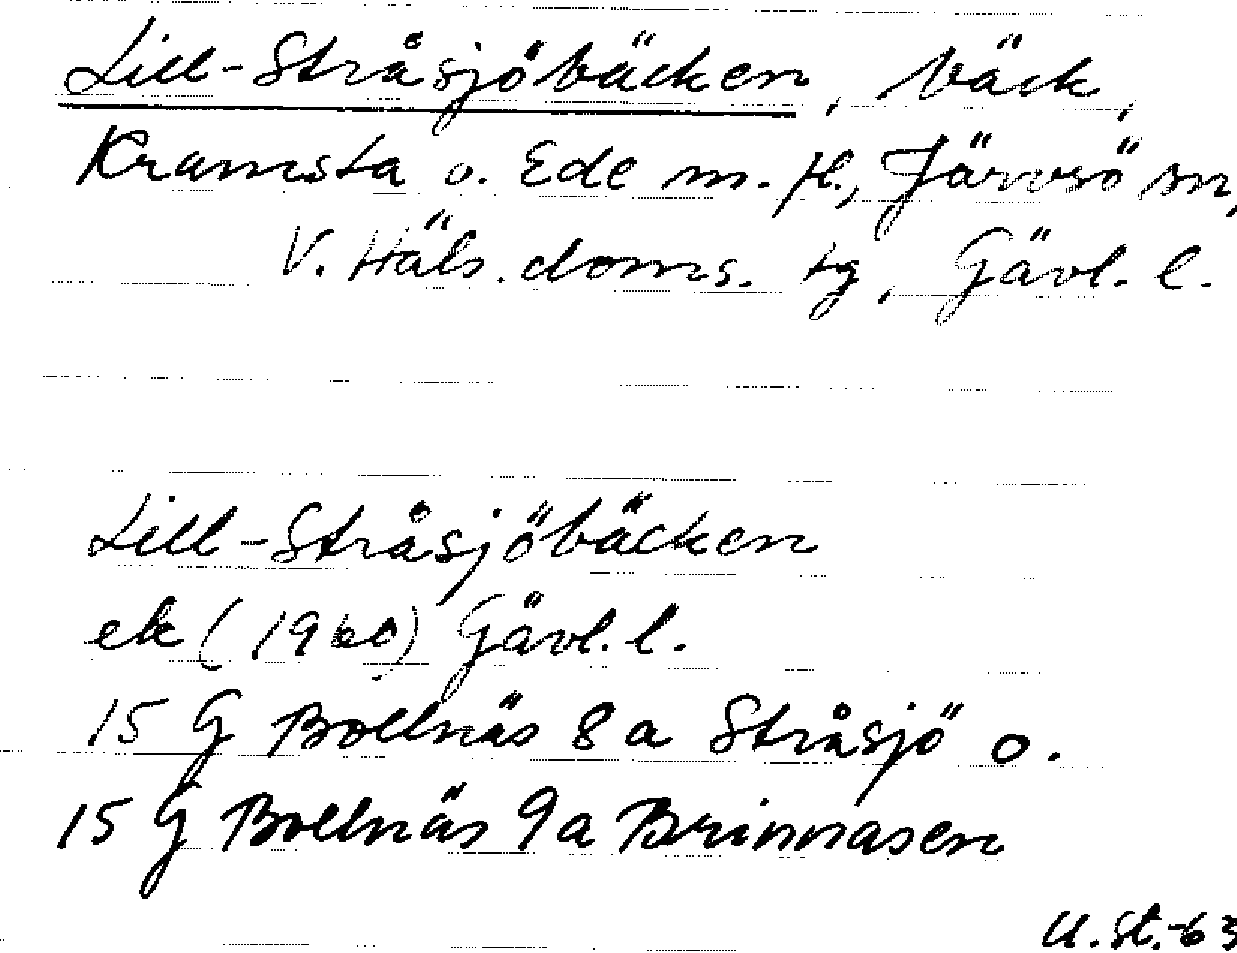 Lill-Stråsjöbäcken, bäck,
Kramsta o. Ede m. fl., Järvsö sn,
V. Häls. doms. tg, Gävl. l.
Lill-Stråsjöbäcken
ek (1960) Gävl. l.
15 G Bollnäs 8 a Stråsjö o.
15 G Bollnäs 9a Brinnasen
U.St.-63